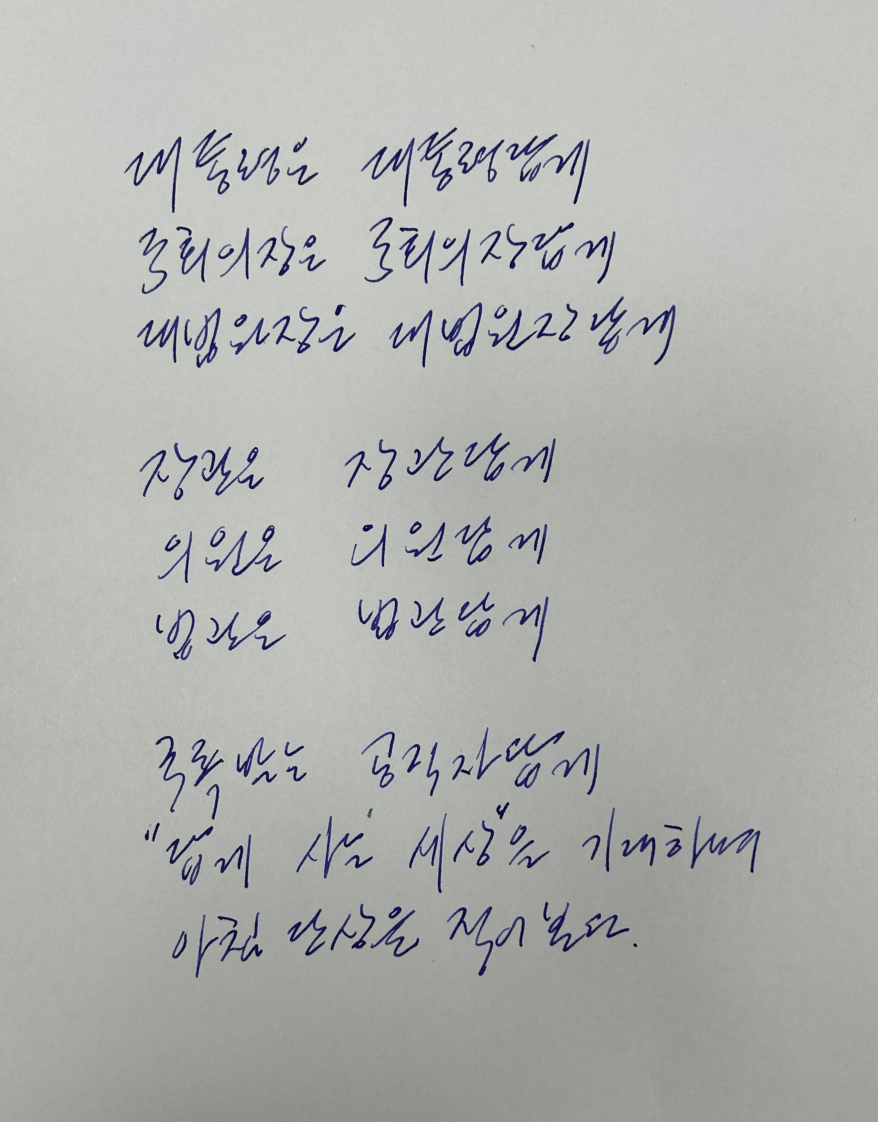 대통령은 대통령답게
국회의장은 국회의장답게
대법원장은 대법원장답게
장관은 장관답게
의원은 의원답게
법관은 법관답게
국록 받는 공직자답게
"답게 사는 세상"을 기대하며
아침 단상을 적어본다.